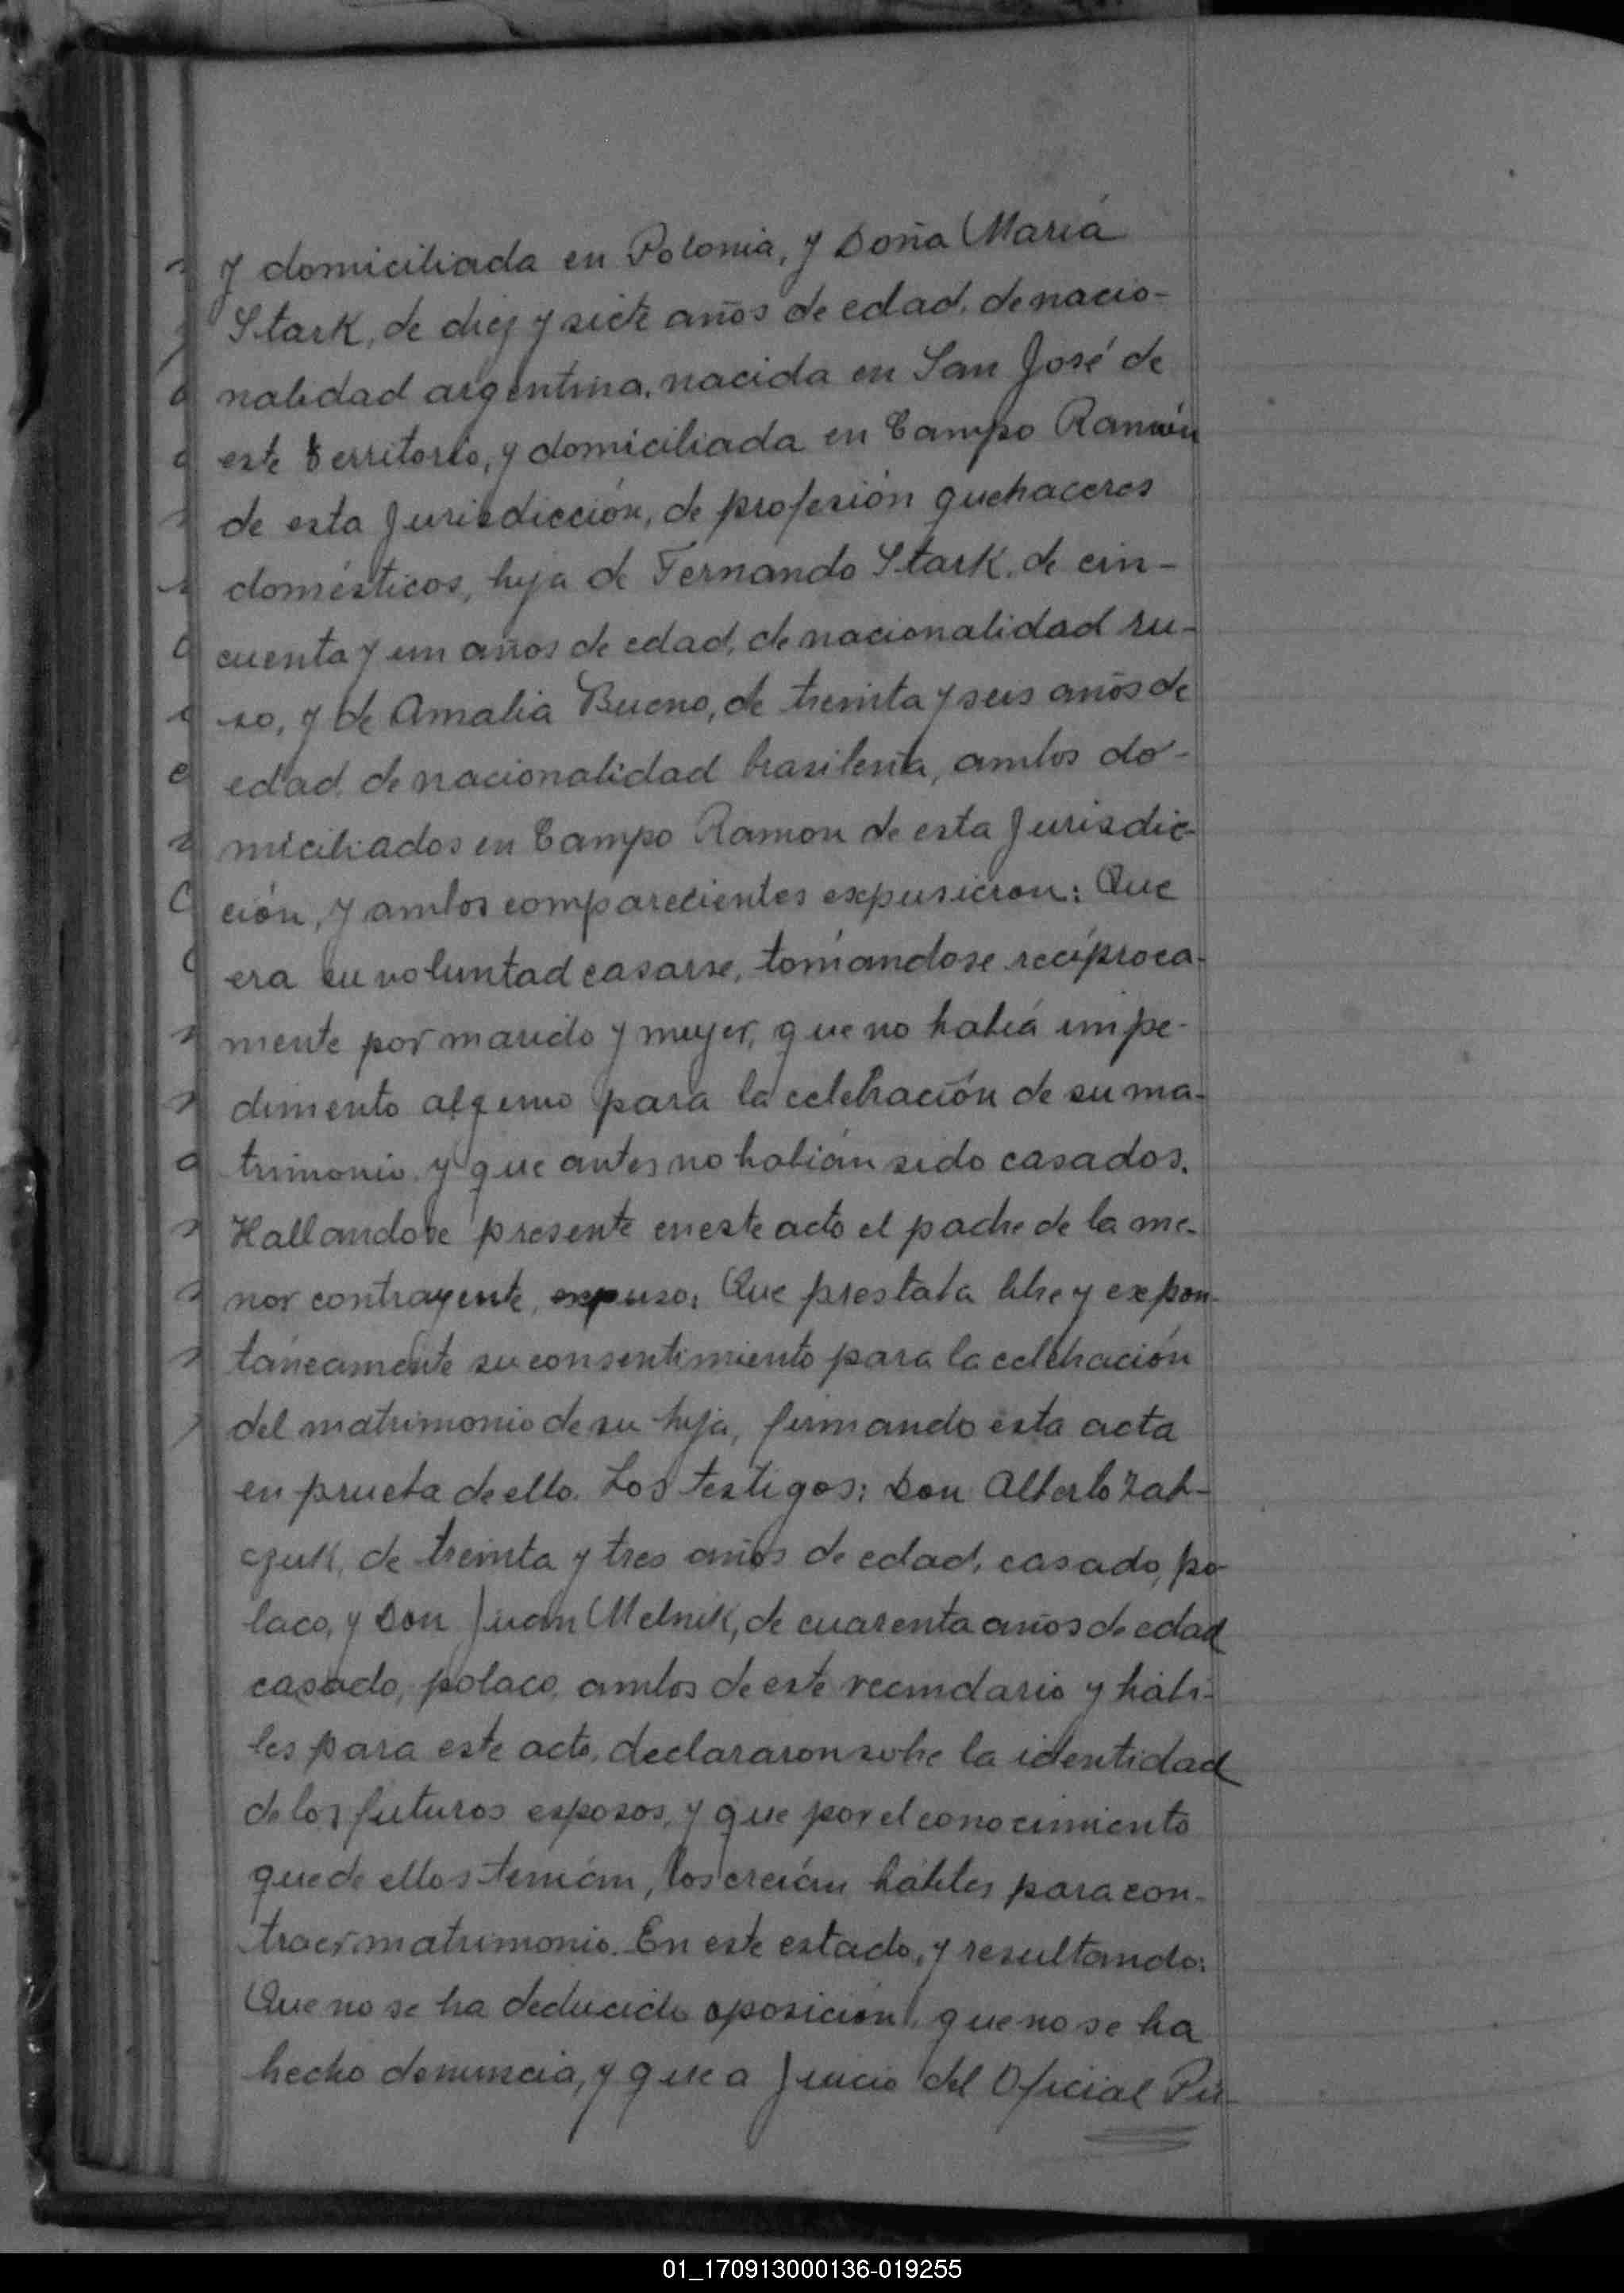 y domiciliada en Polonia, y Doña María
Stark, de diez y siete años de edad, de nacio-
nalidad argentina, nacida en San José de
este territorio, y domiciliada en Campo Ramón
de esta Jurisdicción, de profesión quehaceres
domésticos, hija de Fernando Stark, de cin-
cuenta y un años de edad, de nacionalidad ru-
so, y de Amalia Bueno, de treinta y seis años de
edad, de nacionalidad brasileña, ambos do-
miciliados en Campo Ramon de esta Jurisdic-
ción, y ambos comparecientes expusieron: Que
era su voluntad casarse, tomándose recíproca-
mente por marido y mujer, que no había impe-
dimento alguno para la celebración de su ma-
trimonio, y que antes no habían sido casados.
Hallandose presente en este acto el padre de la me-
nor contrayente, expuso: Que prestaba libre y expon-
táneamente su consentimiento para la celebración
del matrimonio de su hija, firmando esta acta
en prueba de ello. Los testigos: Don Alberto Zab-
czuk, de treinta y tres años de edad, casado, po-
laco, y Don Juan Melnik, de cuarenta años de edad
casado, polaco, ambos de este vecindario y hábi-
les para este acto, declararon sobre la identidad
de los futuros esposos, y que por el conocimiento
que de ellos tenían, los creían hábiles para con-
traer matrimonio. En este estado, y resultando:
Que no se ha deducido oposición, que no se ha
hecho denuncia, y que a Juicio del Oficial Pú-
01_170913000136-019255